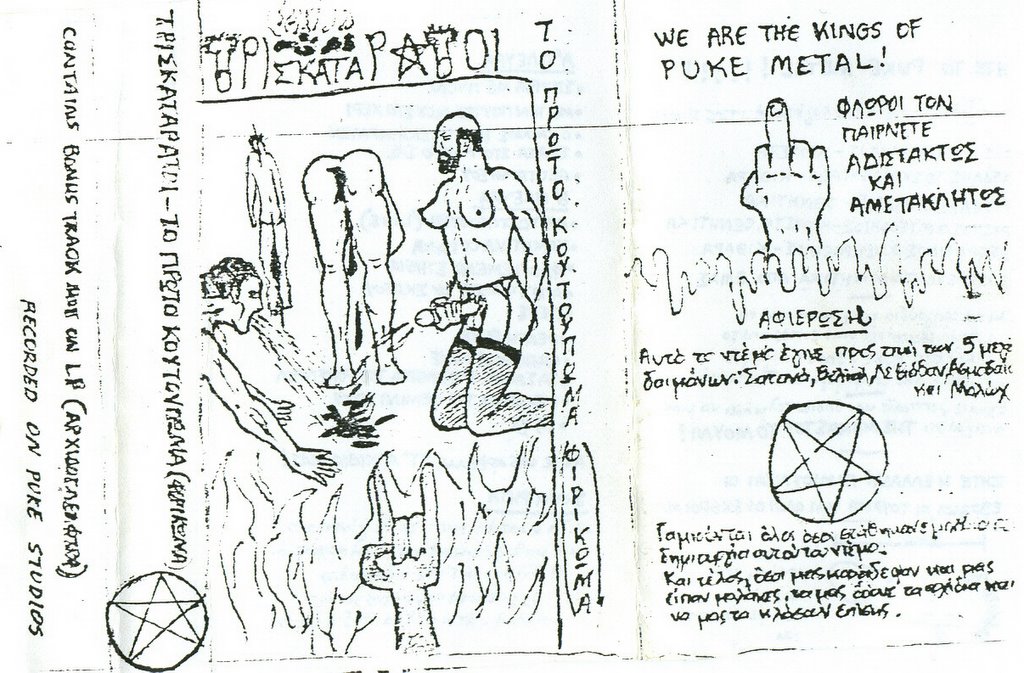 CONTAINS BONUS TRACK NOT ON LP (ΑΡΧΙΔΙ
RECORDED ON PUKE STUDIOS
ΤΡΙΣΚΑΤΑΡΑΤΟΙ - ΤΟ ΠΡΩΤΟ ΚΟΥΤΟΥΠΩΜΑ
ΤΡΙΣΚΑΤΑΡΑΤΟΙ
ΤΟ ΠΡΩΤΟ ΚΟΥΤΟΥΠΩΜΑ
WE ARE THE KINGS OF
PUKE METAL!
ΦΛΩΡΟΙ ΤΟΝ
ΠΑΙΡΝΕΤΕ
ΑΔΙΣΤΑΚΤΩΣ
ΚΑΙ
ΑΜΕΤΑΚΛΗΤΩΣ
ΑΦΙΕΡΩΣΗ
Αυτό το ντέμο έγινε προς τιμή των 5 μεγά
δαιμόνων: Σατανά, Βελιάλ, Λεβιάθαν, Ασμοδαίο
και Μολώχ
Γαμιούνται όλοι όσοι
δημιουργία αυτού του ντέμο.
Και τέλος, όσοι μας κορόιδεψαν και μας
είπαν μαλάκες, να μας
να μας τα κλάσουν επίσης.